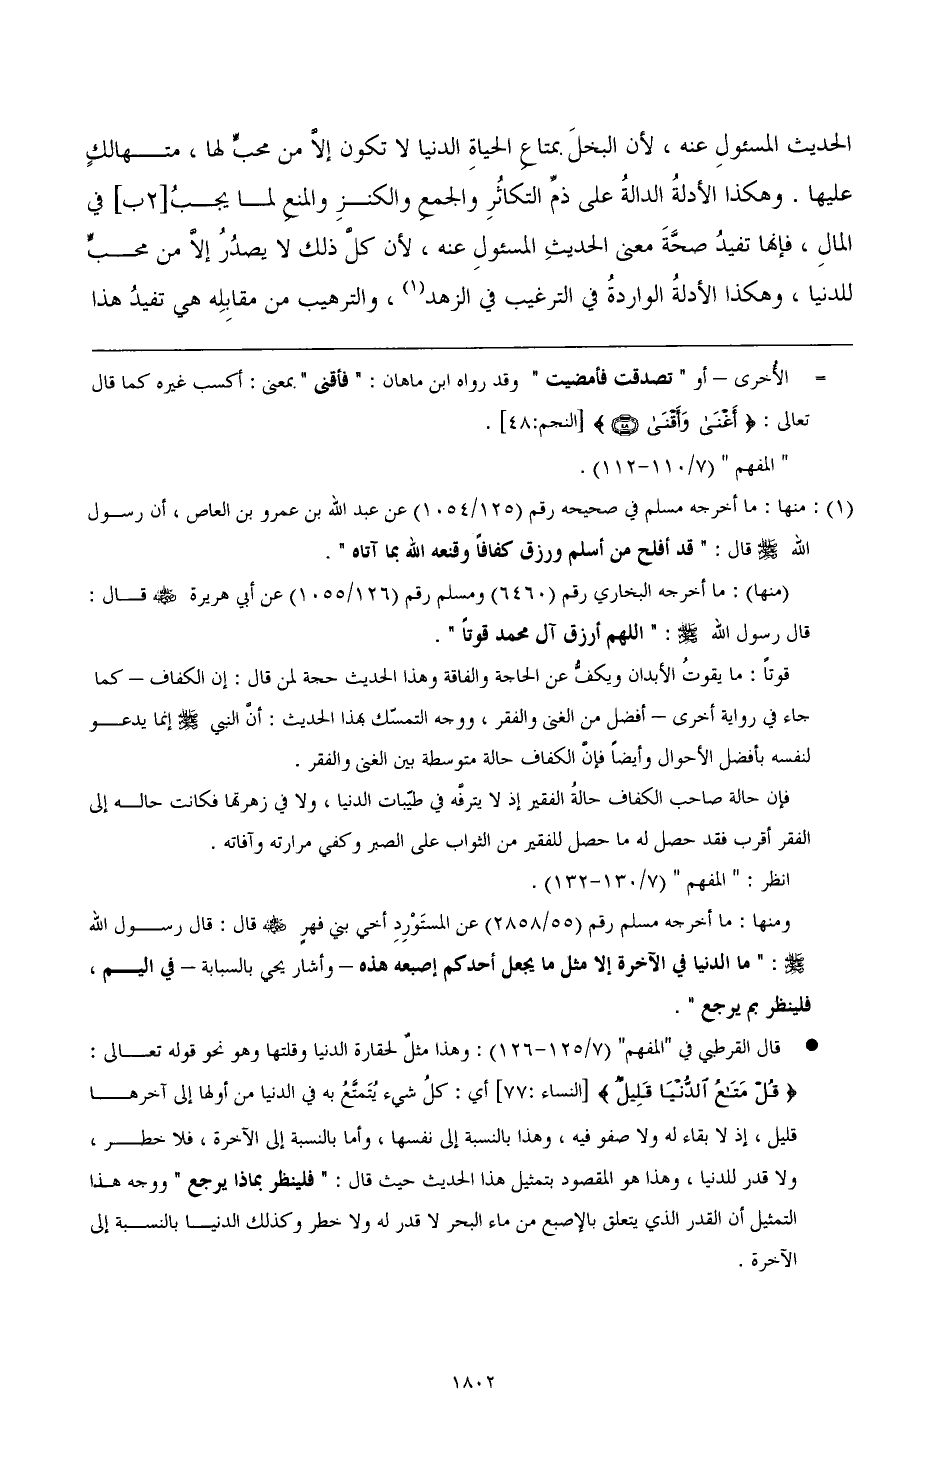 الحديث المسئولِ عنه ، لأن البخلَ بمتاعِ الحياةِ الدنيا لا تكون إلاَّ من محبٍّ لها ، متـهالكٍ
عليها . وهكذا الأدلةُ الدالةُ على ذمِّ التكاثُرِ والجمعِ والكنـزِ والمنعِ لمـا يجـبُ[٢ب] في
المالِ ، فإنها تفيدُ صحَّةَ معنى الحديثِ المسئولِ عنه ، لأن كلَّ ذلك لا يصدُرُ إلاَّ من محـبٍّ
للدنيا ، وهكذا الأدلةُ الواردةُ في الترغيب في الزهد(١) ، والترهيب من مقابلِه هي تفيدُ هذا
= الأُخرى – أو " تصدقت فأمضيت " وقد رواه ابن ماهان : " فأقنى " بمعنى : أكسب غيره كما قال
تعالى : ﴿ أَغْنَىٰ وَأَقْنَىٰ ۝٤٨ ﴾ [النجم:٤٨] .
" المفهم " (١١٠/٧-١١٢) .
(١) : منها : ما أخرجه مسلم في صحيحه رقم (١٠٥٤/١٢٥) عن عبد الله بن عمرو بن العاص ، أن رسـول
الله ﷺ قال : " قد أفلح من أسلم ورزق كفافاً وقنعه الله بما آتاه " .
(منها) : ما أخرجه البخاري رقم (٦٤٦٠) ومسلم رقم (١٠٥٥/١٢٦) عن أبي هريرة ﵁ قـال :
قال رسول الله ﷺ : " اللهم أرزق آل محمد قوتاً " .
قوتاً : ما يقوتُ الأبدان ويكفُّ عن الحاجة والفاقة وهذا الحديث حجة لمن قال : إن الكفاف – كما
جاء في رواية أخرى – أفضل من الغنى والفقر ، ووجه التمسّك بهذا الحديث : أنَّ النبي ﷺ إنما يدعـو
لنفسه بأفضل الأحوال وأيضاً فإنَّ الكفاف حالة متوسطة بين الغنى والفقر .
فإن حالة صاحب الكفاف حالةُ الفقير إذ لا يترفَّه في طيّبات الدنيا ، ولا في زهرتها فكانت حالـه إلى
الفقر أقرب فقد حصل له ما حصل للفقير من الثواب على الصبر وكفي مرارته وآفاته .
انظر : " المفهم " (١٣٠/٧-١٣٢) .
ومنها : ما أخرجه مسلم رقم (٢٨٥٨/٥٥) عن المستَوْرِدِ أخي بني فهرٍ ﵁ قال : قال رسـول الله
ﷺ : " ما الدنيا في الآخرة إلا مثل ما يجعل أحدكم إصبعه هذه – وأشار يحي بالسبابة – في اليـم ،
فلينظر بم يرجع " .
● قال القرطبي في "المفهم" (١٢٥/٧-١٢٦) : وهذا مثلٌ لحقارة الدنيا وقلتها وهو نحو قوله تعـالى :
﴿ قُلْ مَتَـٰعُ ٱلدُّنْيَا قَلِيلٌ ﴾ [النساء :٧٧] أي : كلُ شيء يُتَمتَّعُ به في الدنيا من أولها إلى آخرهـا
قليل ، إذ لا بقاء له ولا صفو فيه ، وهذا بالنسبة إلى نفسها ، وأما بالنسبة إلى الآخرة ، فلا خطـر ،
ولا قدر للدنيا ، وهذا هو المقصود بتمثيل هذا الحديث حيث قال : " فلينظر بماذا يرجع " ووجه هـذا
التمثيل أن القدر الذي يتعلق بالإصبع من ماء البحر لا قدر له ولا خطر وكذلك الدنيـا بالنسـبة إلى
الآخرة .
١٨٠٢